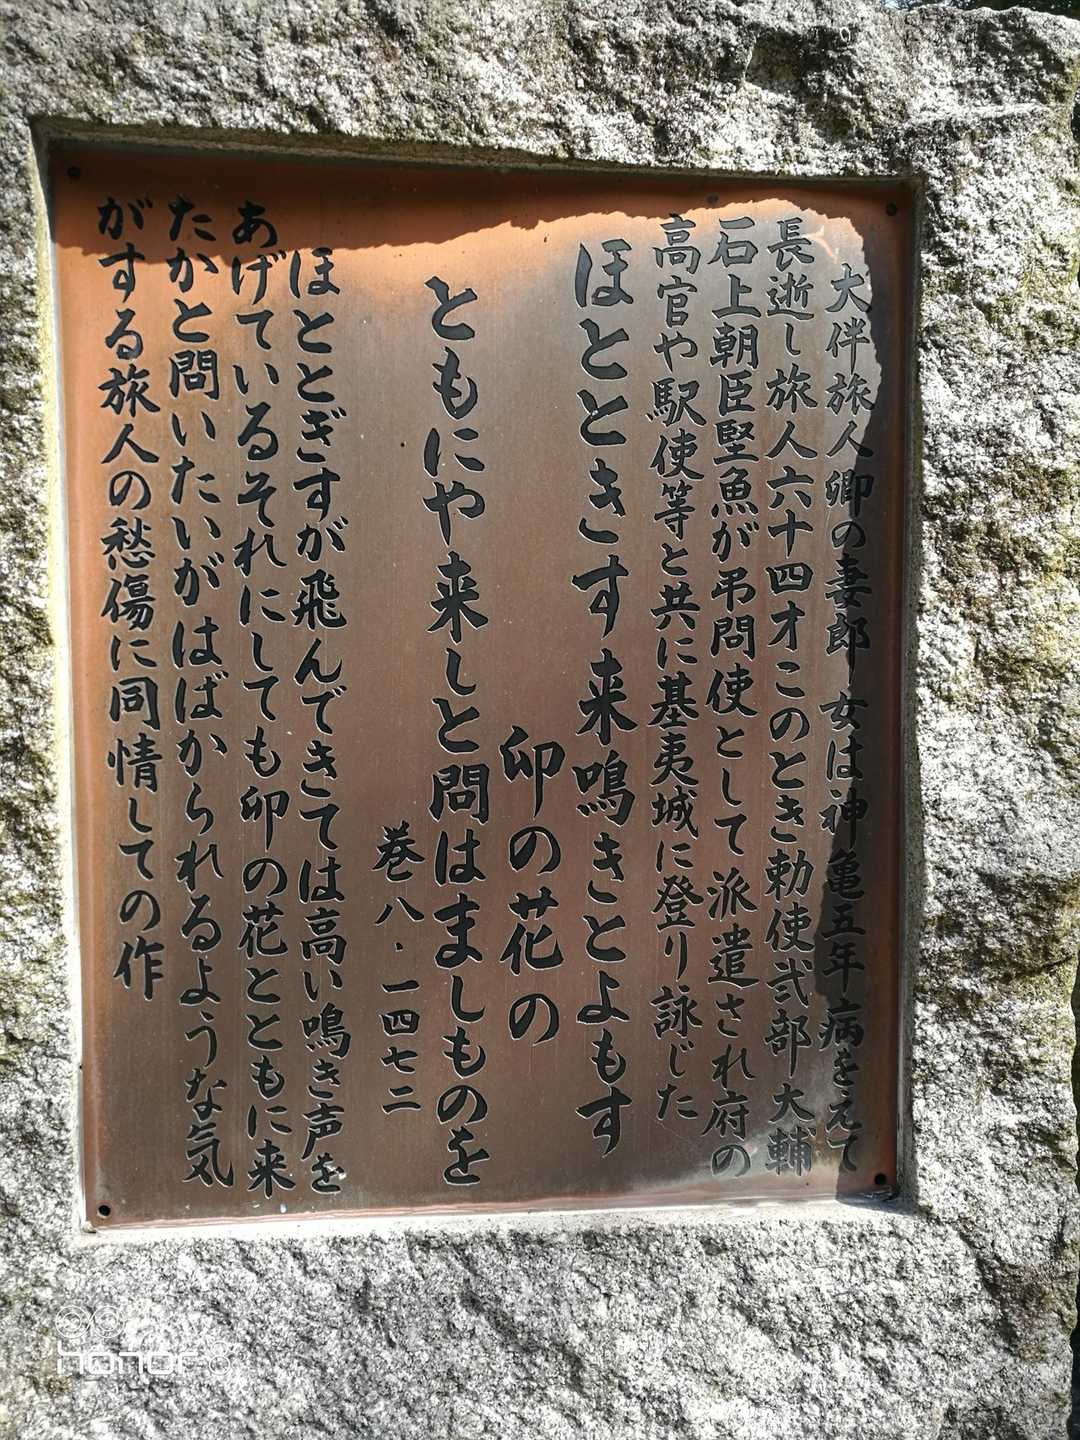 大伴旅人卿の妻郎 女は神亀五年病をえて
長逝し旅人六十四才このとき勅使弐部大輔
石上朝臣堅魚が弔問使として派遣され府の
高官や駅使等と共に基夷城に登り詠じた
ほとときす来鳴きとよもす
卯の花の
ともにや来しと問はましものを
巻八・一四七二
ほととぎすが飛んできては高い鳴き声を
あげているそれにしても卯の花とともに来
たかと問いたいがはばかられるような気
がする旅人の愁傷に同情しての作
honor